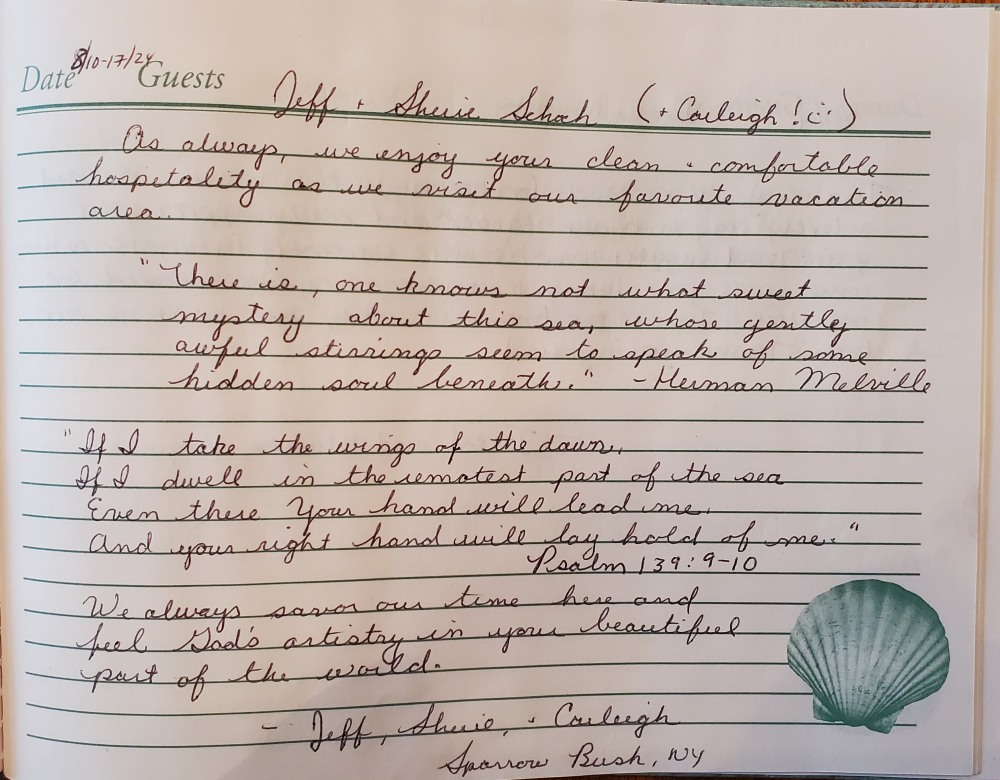 Date 8/10-17/24 Guests
Jeff + Sherie Schoch (+ Carleigh! :))
As always, we enjoy your clean + comfortable
hospitality as we visit our favorite vacation
area.
"There is, one knows not what sweet
mystery about this sea, whose gently
awful stirrings seem to speak of some
hidden soul beneath." - Herman Melville
"If I take the wings of the dawn,
If I dwell in the remotest part of the sea
Even there Your hand will lead me,
And your right hand will lay hold of me."
Psalm 139:9-10
We always savor our time here and
feel God's artistry in your beautiful
part of the world.
- Jeff, Sherie, + Carleigh
Sparrow Bush, NY